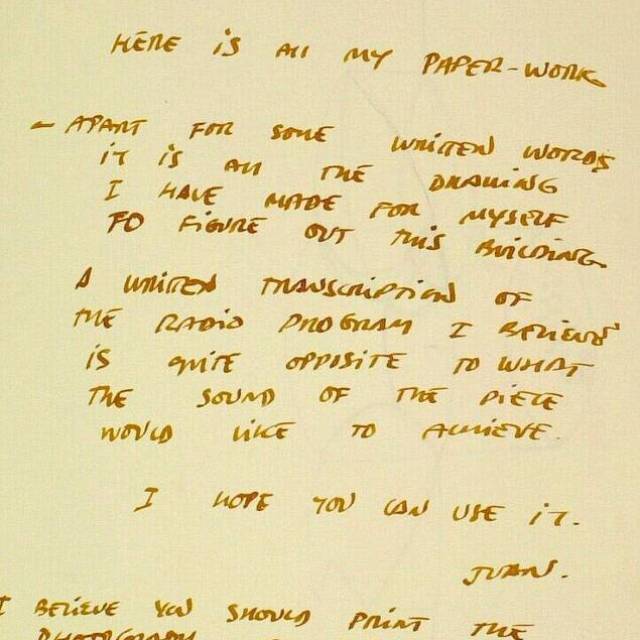 HERE IS All MY PAPER-WORK
– APART FOR SOME WRITTEN WORDS
iT iS All THE DRAWING
I HAVE MADE FOR MYSELF
FO FIGURE OUT THIS BUILDING.
A WRITTEN TRANSCRIPTION OF
THE RADIO PROGRAM I BELIEVE
IS QUITE OPPOSITE TO WHAT
THE SOUND OF THE PIECE
WOULD LIKE TO ACHIEVE.
I HOPE YOU CAN USE iT.
JUAN.
I BELIEVE YOU SHOULD PRINT THE
PHOTOGRAPH